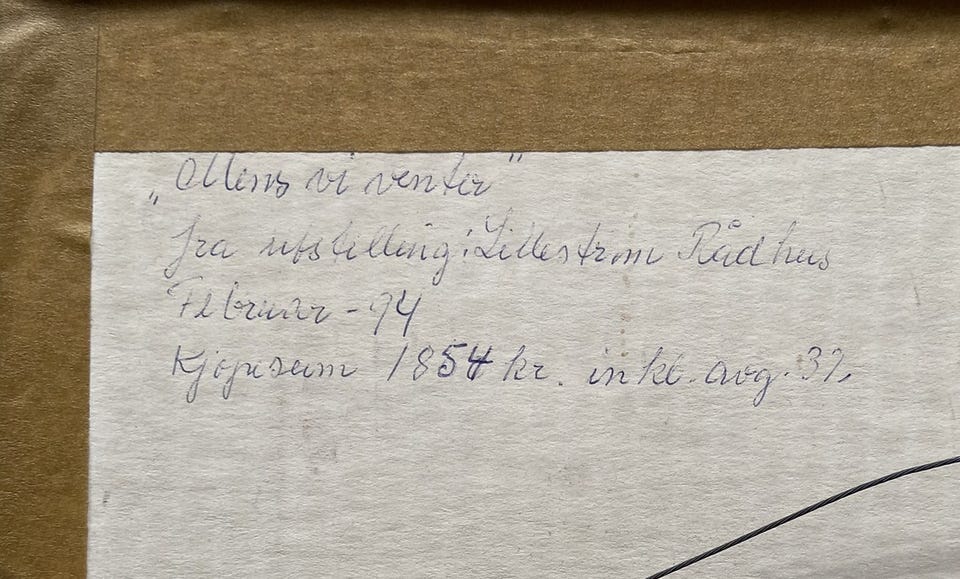 „Mens vi venter"
fra utstilling: Lillestrøm Rådhus
Februar - 94
Kjøpesum 1854 kr. inkl. avg. 3%